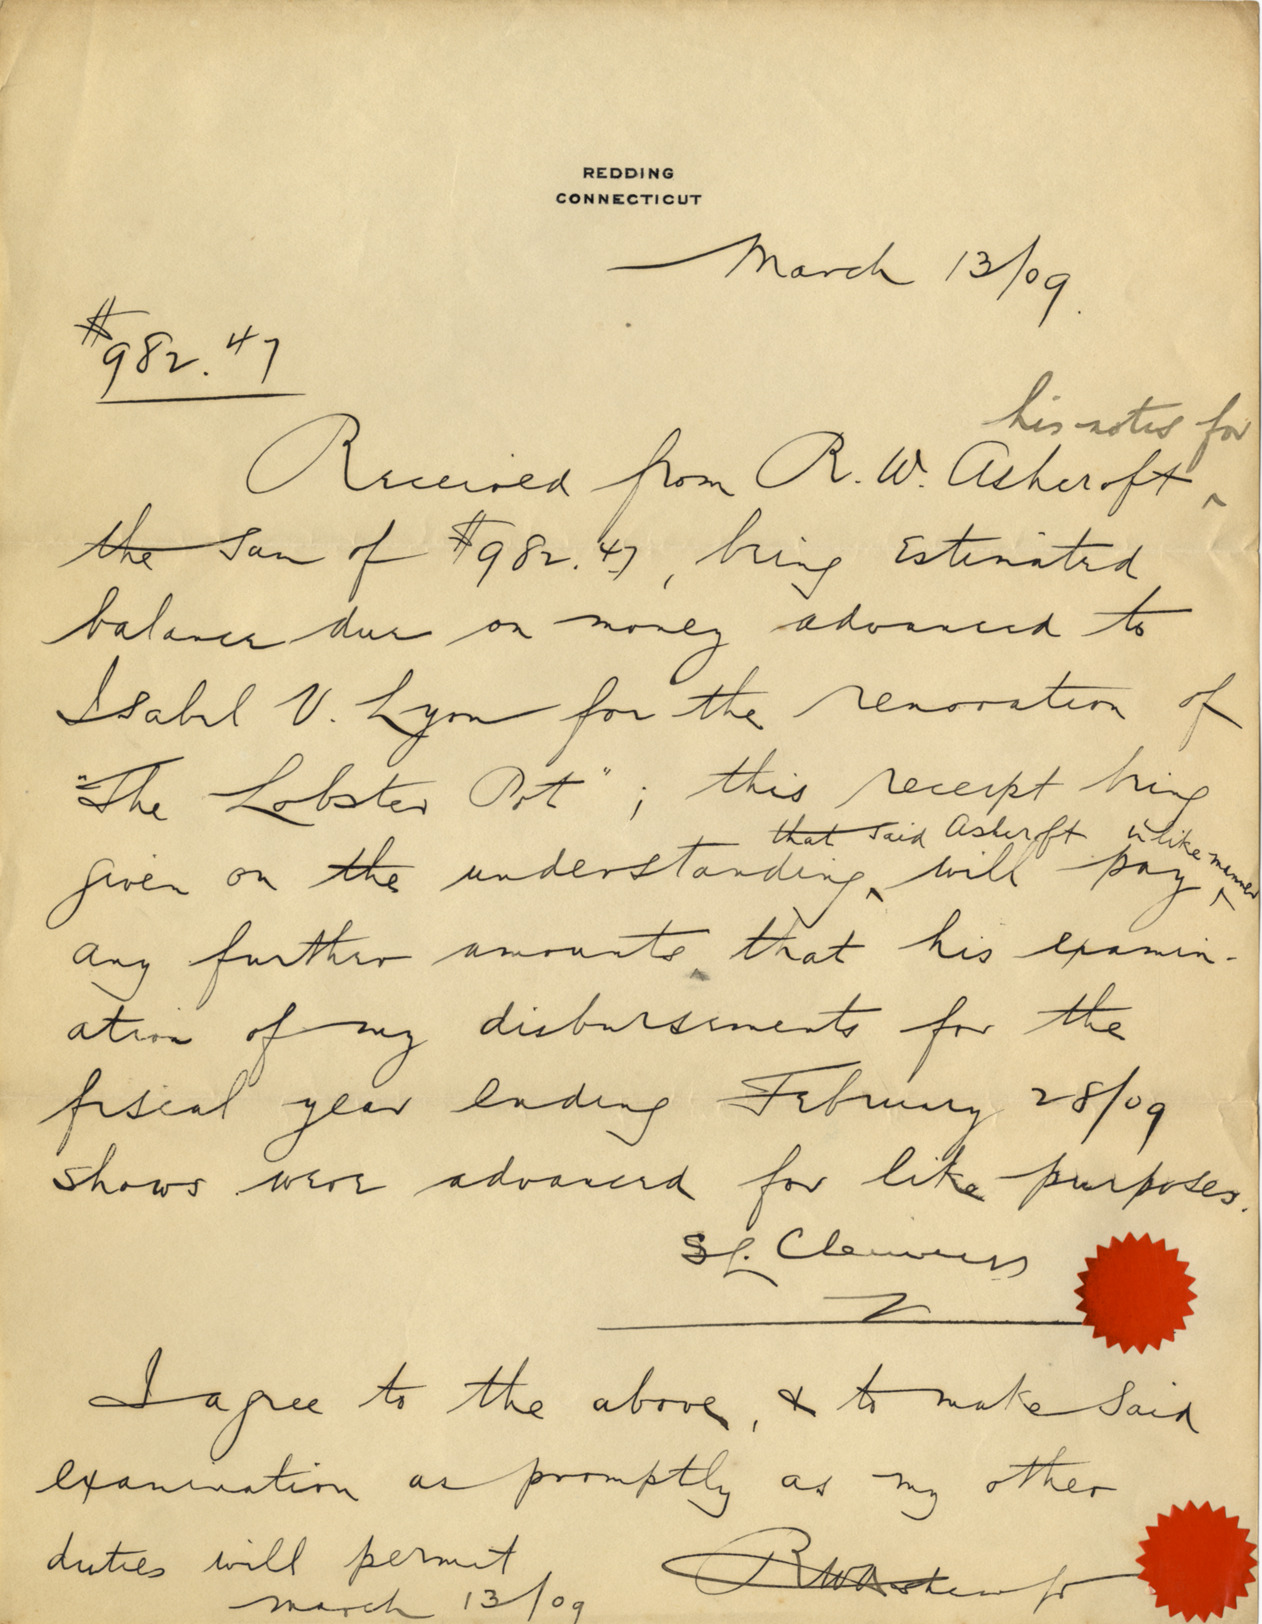 REDDING
CONNECTICUT
March 13/09.
$982.47
his notes for
Received from R. W. Ashcroft ^
the sum of $982.47, being estimated
balance due on money advanced to
Isabel V. Lyon for the renovation of
"The Lobster Pot"; this receipt being
that said Ashcroft in like manner
given on the understanding ^ will pay ^
any further amounts that his examin-
ation of my disbursements for the
fiscal year ending February 28/09
shows were advanced for like purposes.
SL. Clemens
I agree to the above, & to make said
examination as promptly as my other
duties will permit
RWAshcroft
March 13/09